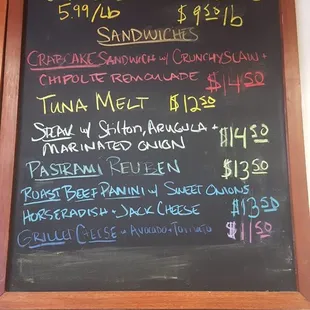 5.99/Lb $9.50/b
SANDWICHES
CRABCAKE SANDWICH W/ CRUNCHY SLAW +
CHIPOLTE REMOULADE $14.50
TUNA MELT $12.50
STEAK W/ STILTON, ARUGULA +
MARINATED ONION $14.50
PASTRAMI REUBEN $13.50
ROAST BEEF PANINI W/ SWEET ONIONS
HORSERADISH + JACK CHEESE $13.50
GRILLED CHEESE AVOCADO + $11.50